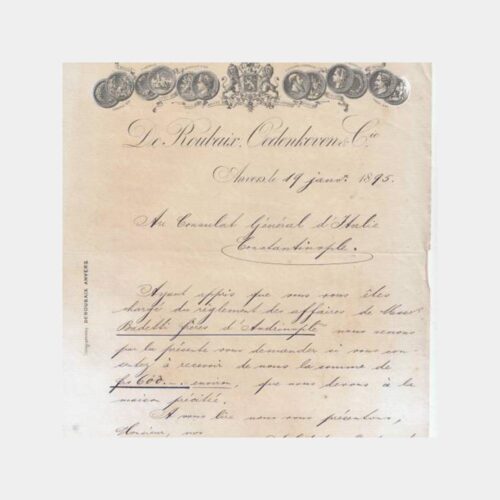 De Roubaix, Oedenkoven & Cie
Anvers, le 19 janvr. 1895.
Au Consulat Général d'Italie
Constantinople.
Ayant appris que vous vous êtes
chargé du règlement des affaires de Mess
Badetti frères d'Andrinople nous venons
par la présente vous demander si vous con-
sentez à recevoir de nous la somme de
frs 600.— environ, que nous devons à la
maison précitée.
A vous lire nous vous présentons,
Monsieur, nos
DEROUBAIX ANVERS.